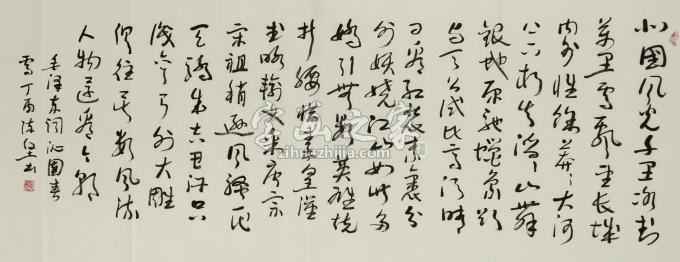 北国风光千里冰封
万里雪飘望长城
内外惟余莽莽大河
上下顿失滔滔山舞
银蛇原驰蜡象欲
与天公试比高须晴
日看红装素裹分
外妖娆江山如此多
娇引无数英雄竞
折腰惜秦皇汉
武略输文采唐宗
宋祖稍逊风骚一代
天骄成吉思汗只
识弯弓射大雕
俱往矣数风流
人物还看今朝
毛泽东词沁园春
雪丁酉陈书
字画之家
zihuazhijia.com